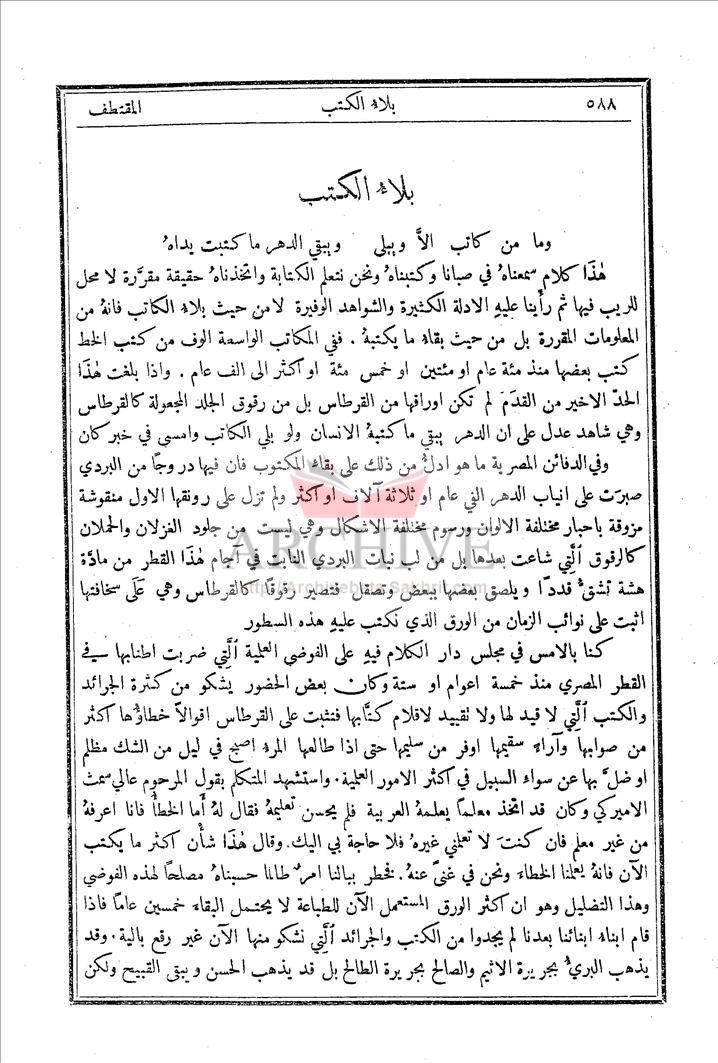 ٥٨٨
بلاء الكتب
المقتطف
بلاء الكتب
وما من كاتب الاَّ ويبلى ويبقي الدهر ما كتبت يداهُ
هٰذا كلام سمعناهُ في صبانا وكتبناهُ ونحن نتعلم الكتابة واتخذناهُ حقيقة مقرَّرة لا محل
للريب فيها ثم رأينا عليهِ الادلة الكثيرة والشواهد الوفيرة لا من حيث بلاء الكاتب فانهُ من
المعلومات المقررة بل من حيث بقاء ما يكتبهُ . ففي المكاتب الواسعة الوف من كتب الخط
كتب بعضها منذ مئة عام او مئتين او خمس مئة او اكثر الى الف عام . واذا بلغت هٰذا
الحدّ الاخير من القدَم لم تكن اوراقها من القرطاس بل من رقوق الجلد المجعولة كالقرطاس
وهي شاهد عدل على ان الدهر يبقي ما كتبهُ الانسان ولو بلي الكاتب وامسى في خبر كان
وفي الدفائن المصرية ما هو ادلُّ من ذلك على بقاء المكتوب فان فيها دروجًا من البردي
صبرَت على انياب الدهر الفي عام او ثلاثة آلاف او اكثر ولم تزل على رونقها الاول منقوشة
مزوقة باحبار مختلفة الالوان ورسوم مختلفة الاشكال وهي ليست من جلود الغزلان والحملان
كالرقوق ٱلَّتي شاعت بعدها بل من لب نبات البردي النابت في آجام هٰذا القطر من مادَّة
هشة تشقُّ قددًا ويلصق بعضها ببعض وتصقل فتصير رقوقًا كالقرطاس وهي عَلَى سخافتها
اثبت على نوائب الزمان من الورق الذي نكتب عليهِ هذه السطور
كنا بالامس في مجلس دار الكلام فيهِ على الفوضى العلمية ٱلَّتي ضربت اطنابها في
القطر المصري منذ خمسة اعوام او ستة وكان بعض الحضور يشكو من كثرة الجرائد
والكتب ٱلَّتي لا قيد لها ولا نقييد لاقلام كتَّابها فنثبت على القرطاس اقوالاً خطاؤُها اكثر
من صوابها وآراءً سقيمها اوفر من سليمها حتى اذا طالعها المرء اصبح في ليل من الشك مظلم
او ضلَّ بها عن سواء السبيل في اكثر الامور العلمية . واستشهد المتكلم بقول المرحوم عالي سمث
الاميركي وكان قد اتخذ معلمًا يعلمهُ العربية فلم يحسن تعليمهُ فقال لهُ أما الخطأُ فانا اعرفهُ
من غير معلم فان كنتَ لا تعلمني غيرهُ فلا حاجة بي اليك . وقال هٰذا شأن اكثر ما يكتب
الآن فانهُ يعلمنا الخطاء ونحن في غنًى عنهُ . فخطر ببالنا امرٌ طالما حسبناهُ مصلحًا لهذه الفوضى
وهذا التضليل وهو ان اكثر الورق المستعمل الآن للطباعة لا يحتمل البقاء خمسين عامًا فاذا
قام ابناءُ ابنائنا بعدنا لم يجدوا من الكتب والجرائد ٱلَّتي نشكو منها الآن غير رقع بالية . وقد
يذهب البريُّ بجريرة الاثيم والصالح بجريرة الطالح بل قد يذهب الحسن ويبقى القبيح ولكن
ARCHIVE
http://Archivebeta.Sakhrit.com